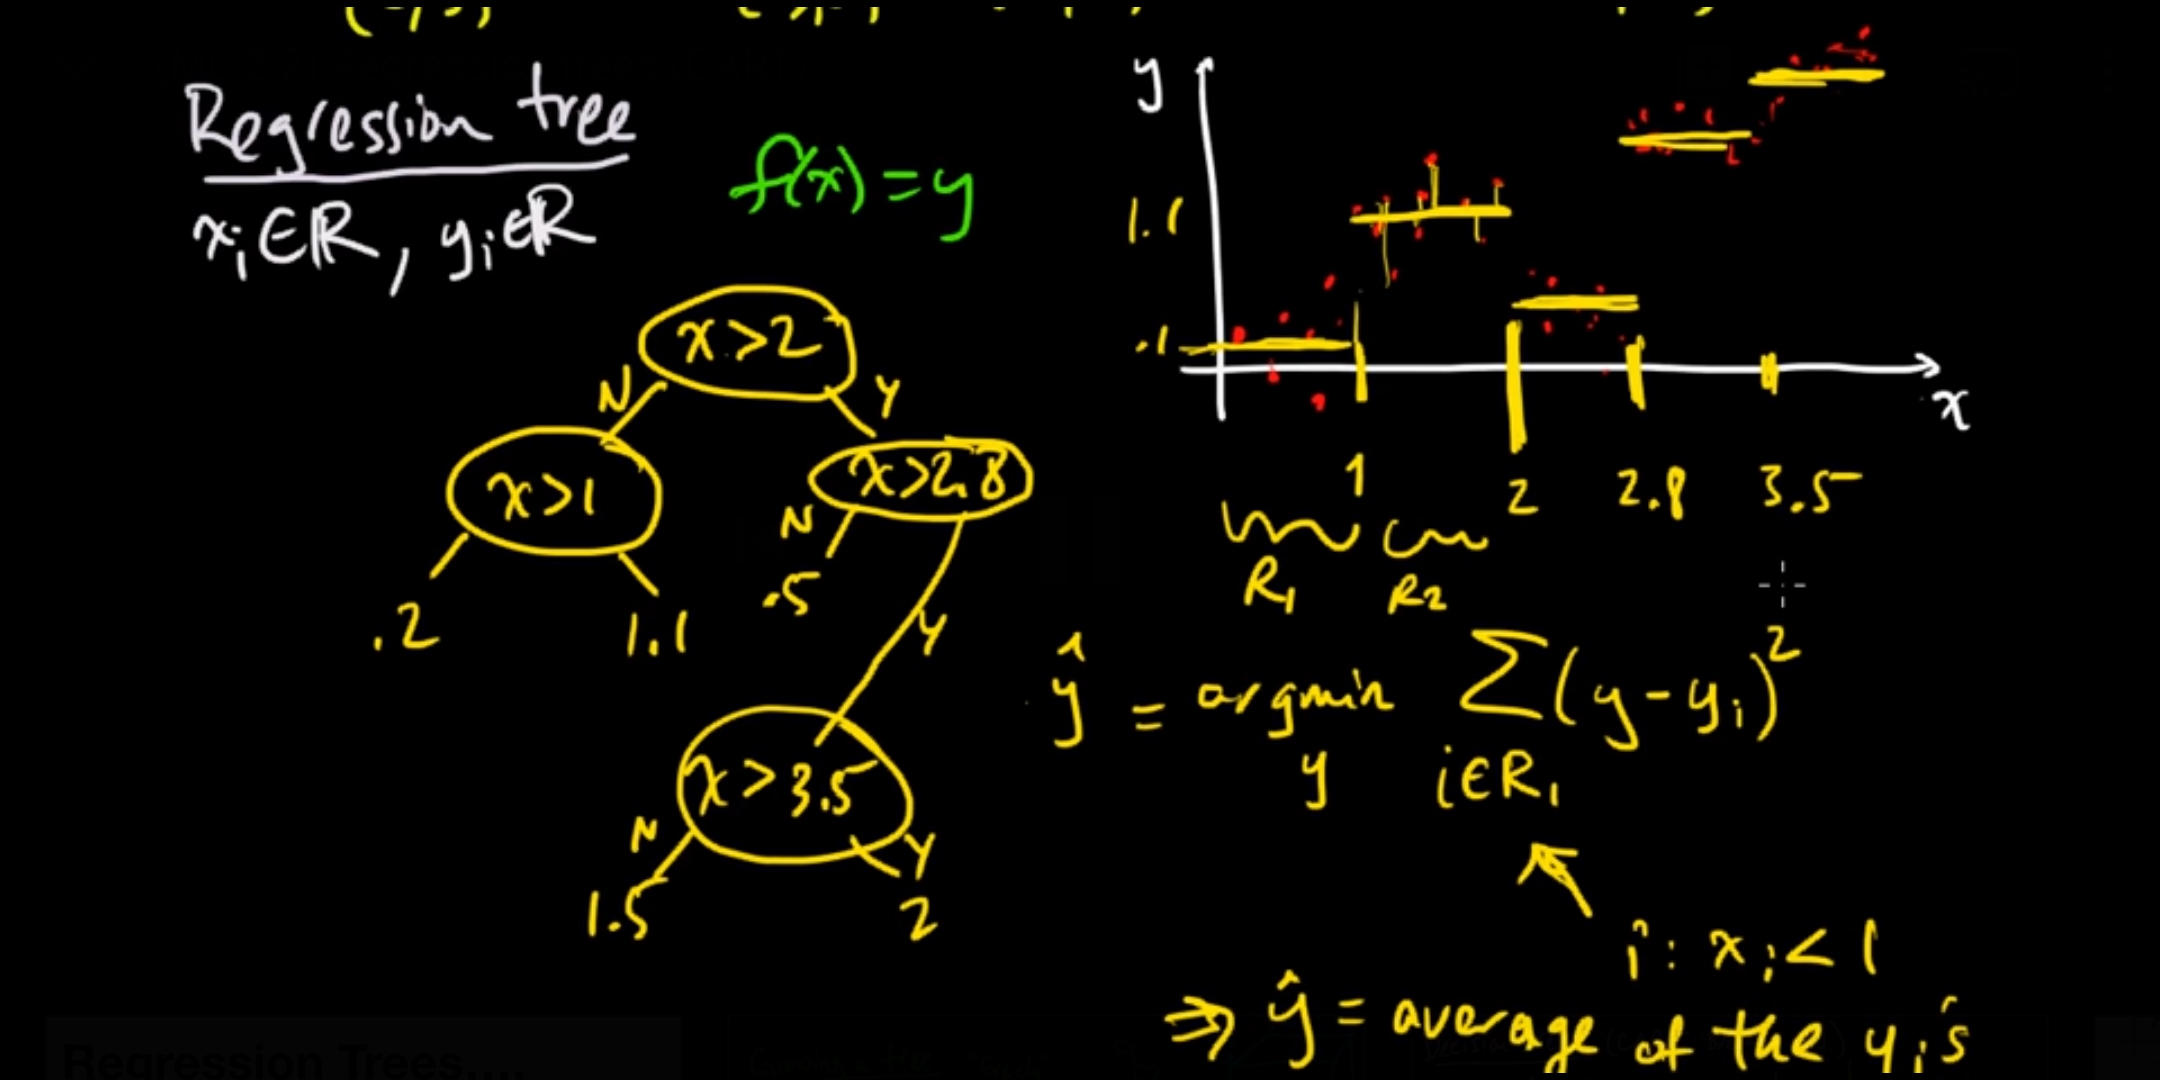 Regression tree
xᵢ∈ℝ, yᵢ∈ℝ
f(x)=y
x>2
N
Y
x>1
.2
1.1
x>2.8
N
.5
Y
x>3.5
N
1.5
Y
2
y
1.1
.1
x
1
2
2.8
3.5
R₁
R₂
ŷ = argmin Σ(y-yᵢ)²
y
i∈R₁
i: xᵢ<1
⇒ ŷ = average of the yᵢ's
Regression Trees....